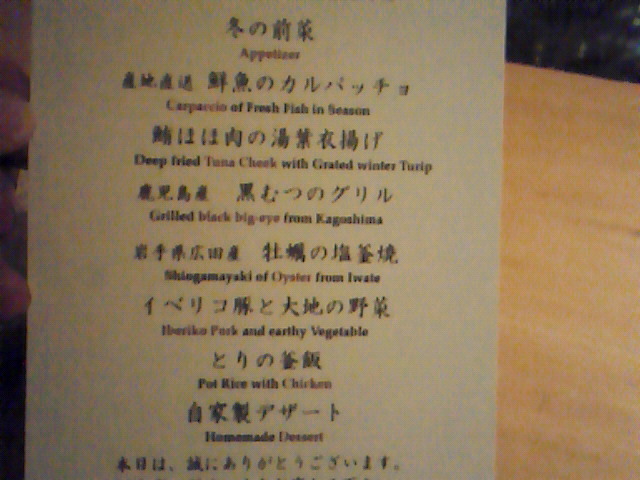 冬の前菜
Appetizer
産地直送 鮮魚のカルパッチョ
Carpaccio of Fresh Fish in Season
鮪ほほ肉の湯葉衣揚げ
Deep fried Tuna Cheek with Grated winter Turip
鹿児島産 黒むつのグリル
Grilled black big-eye from Kagoshima
岩手県広田産 牡蠣の塩釜焼
Shiogamayaki of Oyster from Iwate
イベリコ豚と大地の野菜
Iberiko Pork and earthy Vegetable
とりの釜飯
Pot Rice with Chicken
自家製デザート
Homemade Dessert
本日は、誠にありがとうございます。